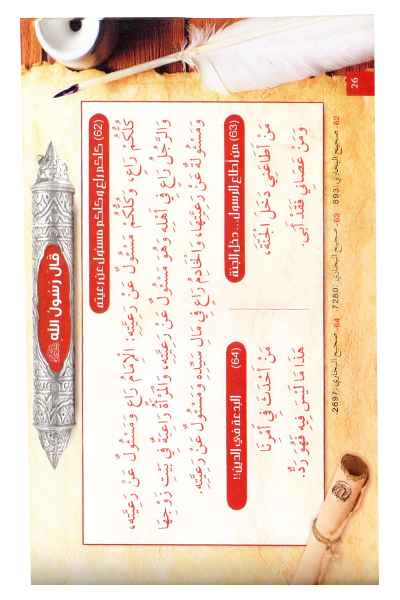 قال رسول الله ﷺ
(62) كلكم راع وكلكم مسئول عن رعيته
كُلُّكُمْ رَاعٍ، وَكُلُّكُمْ مَسْئُولٌ عَنْ رَعِيَّتِهِ: الْإِمَامُ رَاعٍ وَمَسْئُولٌ عَنْ رَعِيَّتِهِ،
وَالرَّجُلُ رَاعٍ فِي أَهْلِهِ وَهُوَ مَسْئُولٌ عَنْ رَعِيَّتِهِ، وَالْمَرْأَةُ رَاعِيَةٌ فِي بَيْتِ زَوْجِهَا
وَمَسْئُولَةٌ عَنْ رَعِيَّتِهَا، وَالْخَادِمُ رَاعٍ فِي مَالِ سَيِّدِهِ وَمَسْئُولٌ عَنْ رَعِيَّتِهِ.
(63) من أطاع الرسول... دخل الجنة
مَنْ أَطَاعَنِي دَخَلَ الْجَنَّةَ،
وَمَنْ عَصَانِي فَقَدْ أَبَى.
(64) البدعة في الدين!!
مَنْ أَحْدَثَ فِي أَمْرِنَا
هَذَا مَا لَيْسَ فِيهِ فَهُوَ رَدٌّ.
62- صحيح البخاري: 893. 63- صحيح البخاري: 7280. 64- صحيح البخاري: 2697.
26